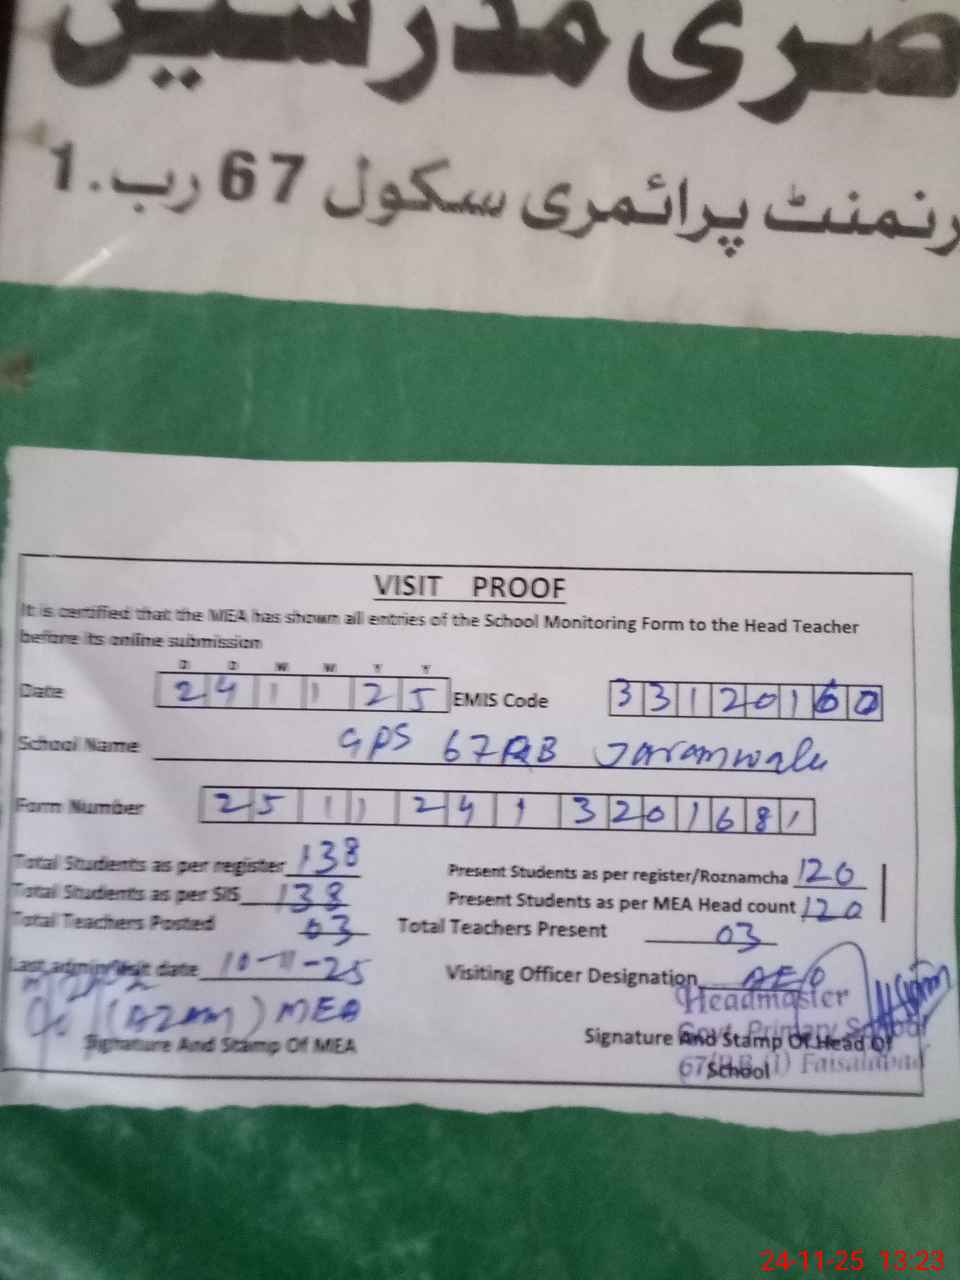 ضری مدرسین
رنمنٹ پرائمری سکول 67 رب.1
VISIT PROOF
It is certified that the MEA has shown all entries of the School Monitoring Form to the Head Teacher
before its online submission
D D M M Y Y
Date 24 11 25 EMIS Code 33120160
School Name GPS 67RB Jaranwala
Form Number 25 11 24 1 3201681
Total Students as per register 138 Present Students as per register/Roznamcha 120
Total Students as per SIS 138 Present Students as per MEA Head count 120
Total Teachers Posted 03 Total Teachers Present 03
Last admin visit date 10-11-25 Visiting Officer Designation AEO
(AZAM) MEA
Headmaster
Signature And Stamp Of MEA Signature And Stamp Of Head Of
School
Govt. Primary School
67 R.B (1) Faisalabad
24-11-25 13:23